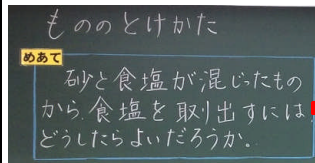 もののとけかた
めあて
砂と食塩が混じったもの
から、食塩を取り出すには、
どうしたらよいだろうか。